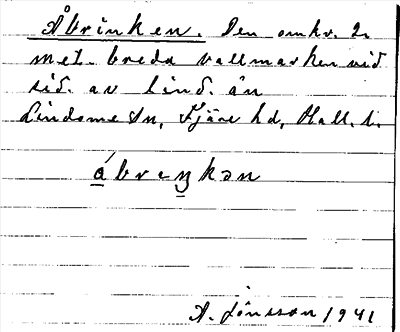 Åbrinken. Den omkr. 2
met. breda vallmarken vid
sid. av Lind. ån
Lindome sn, Fjäre hd, Hall. l.
ábreŋkən
A. Jönsson 1941